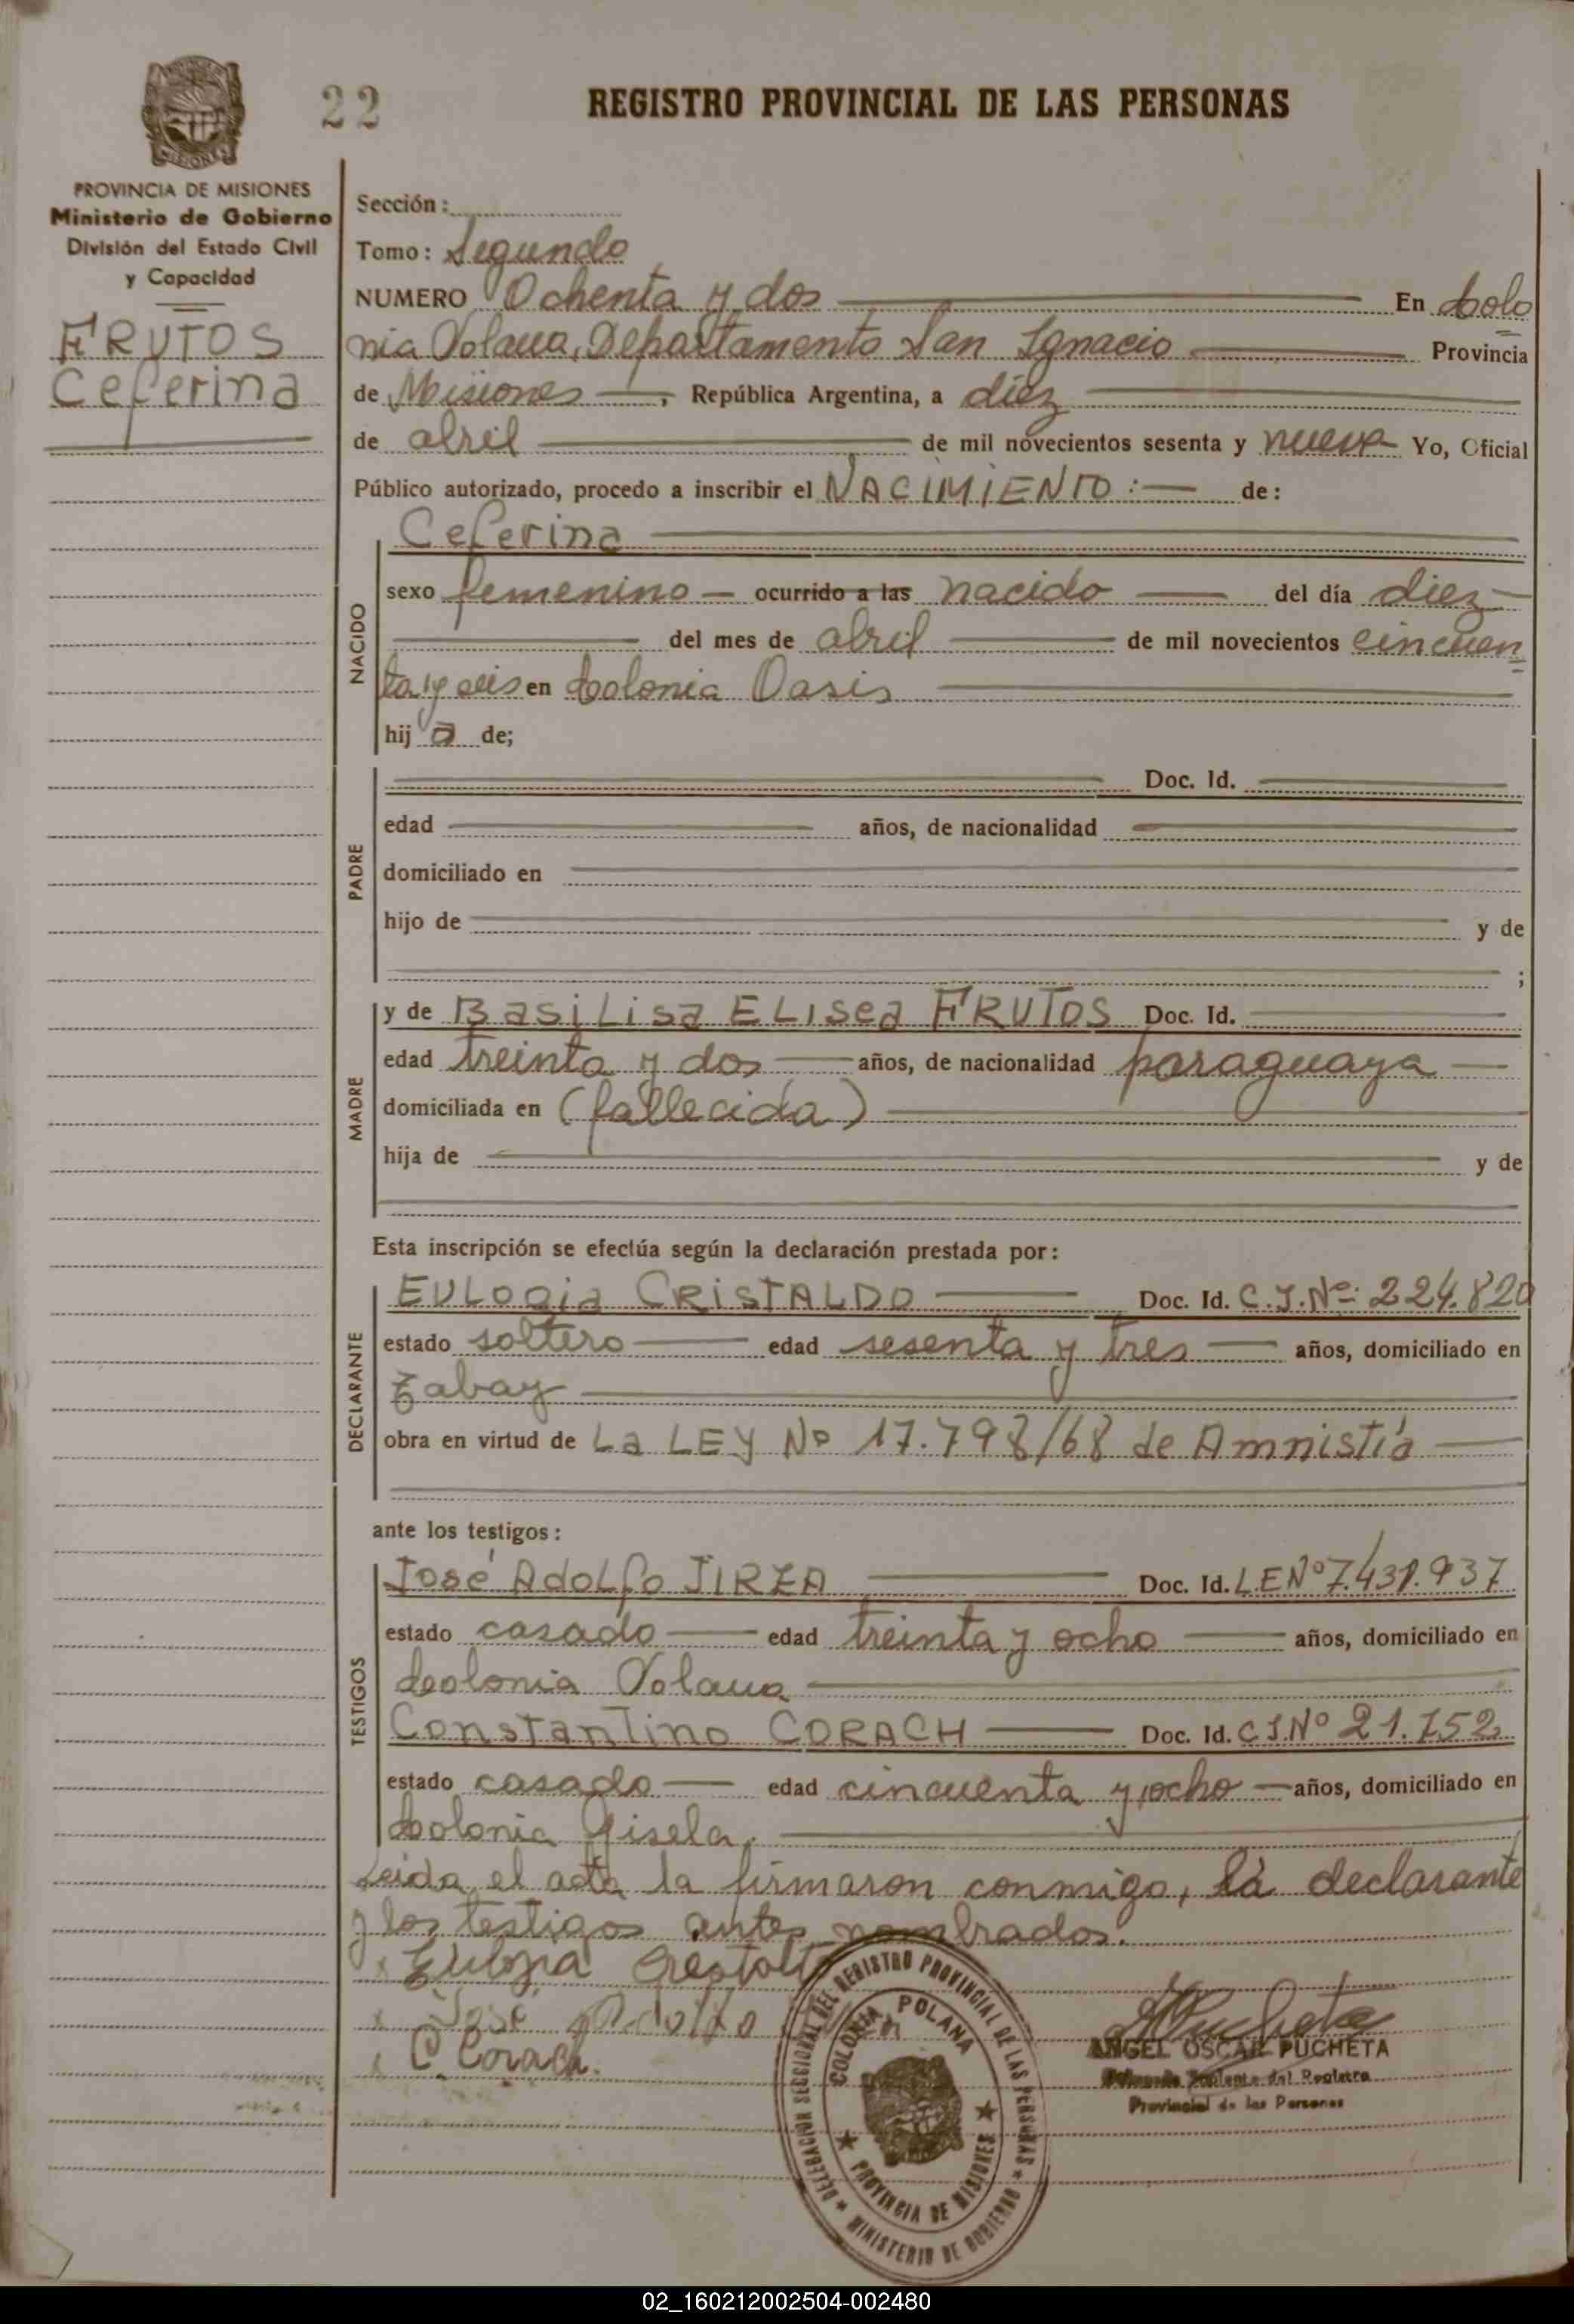 22
REGISTRO PROVINCIAL DE LAS PERSONAS
MISIONES
PROVINCIA DE MISIONES
Ministerio de Gobierno
División del Estado Civil
y Capacidad
FRUTOS
Ceferina
Sección:
Tomo: Segundo
NUMERO Ochenta y dos En Colo
nia Polana, Departamento San Ignacio Provincia
de Misiones, República Argentina, a diez
de abril de mil novecientos sesenta y nueve Yo, Oficial
Público autorizado, procedo a inscribir el NACIMIENTO: de:
Ceferina
NACIDO
sexo femenino ocurrido a las nacido del día diez
del mes de abril de mil novecientos cincuen
ta y seis en Colonia Oasis
hij a de;
PADRE
Doc. Id.
edad años, de nacionalidad
domiciliado en
hijo de y de
;
MADRE
y de Basilisa ELisea FRUTOS Doc. Id.
edad treinta y dos años, de nacionalidad paraguaya
domiciliada en (fallecida)
hija de y de
Esta inscripción se efectúa según la declaración prestada por:
DECLARANTE
EULogia CRISTALDO Doc. Id. C.I.Nº: 224.820
estado soltero edad sesenta y tres años, domiciliado en
Tabay
obra en virtud de La LEY Nº 17.798/68 de Amnistía
ante los testigos:
TESTIGOS
José AdoLfo JIRZA Doc. Id. L.E.Nº 7.431.937
estado casado edad treinta y ocho años, domiciliado en
Colonia Polana
Constantino CORACH Doc. Id. C.I.Nº 21.752
estado casado edad cincuenta y ocho años, domiciliado en
Colonia Gisela.
Leida el acta la firmaron conmigo, la declarante
y los testigos antes nombrados.
x Eulogia
x José Adolfo
x C. Corach.
DELEGACION SECCIONAL DEL REGISTRO PROVINCIAL DE LAS PERSONAS
MINISTERIO DE GOBIERNO
COLONIA POLANA
PROVINCIA DE MISIONES
Pucheta
ANGEL OSCAR PUCHETA
Suplente del Registro
Provincial de las Personas
02_160212002504-002480